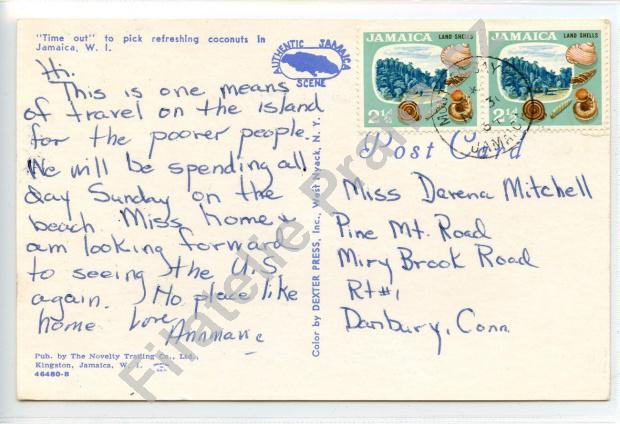 "Time out" to pick refreshing coconuts in
Jamaica, W. I.
AUTHENTIC JAMAICA
SCENE
Hi.
This is one means
of travel on the island
for the poorer people.
We will be spending all
day Sunday on the
beach. Miss home &
am looking forward
to seeing the U.S.
again. No place like
home Love
Annmarie
Pub. by The Novelty Trading Co., Ltd.,
Kingston, Jamaica, W. I.
46480-B
Color by DEXTER PRESS, Inc., West Nyack, N. Y.
JAMAICA LAND SHELLS
2½d
JAMAICA LAND SHELLS
2½d
BAY
JAMAICA
Post Card
Miss Darena Mitchell
Pine Mt. Road
Miry Brook Road
Rt#1
Danbury, Conn.
Filatelie